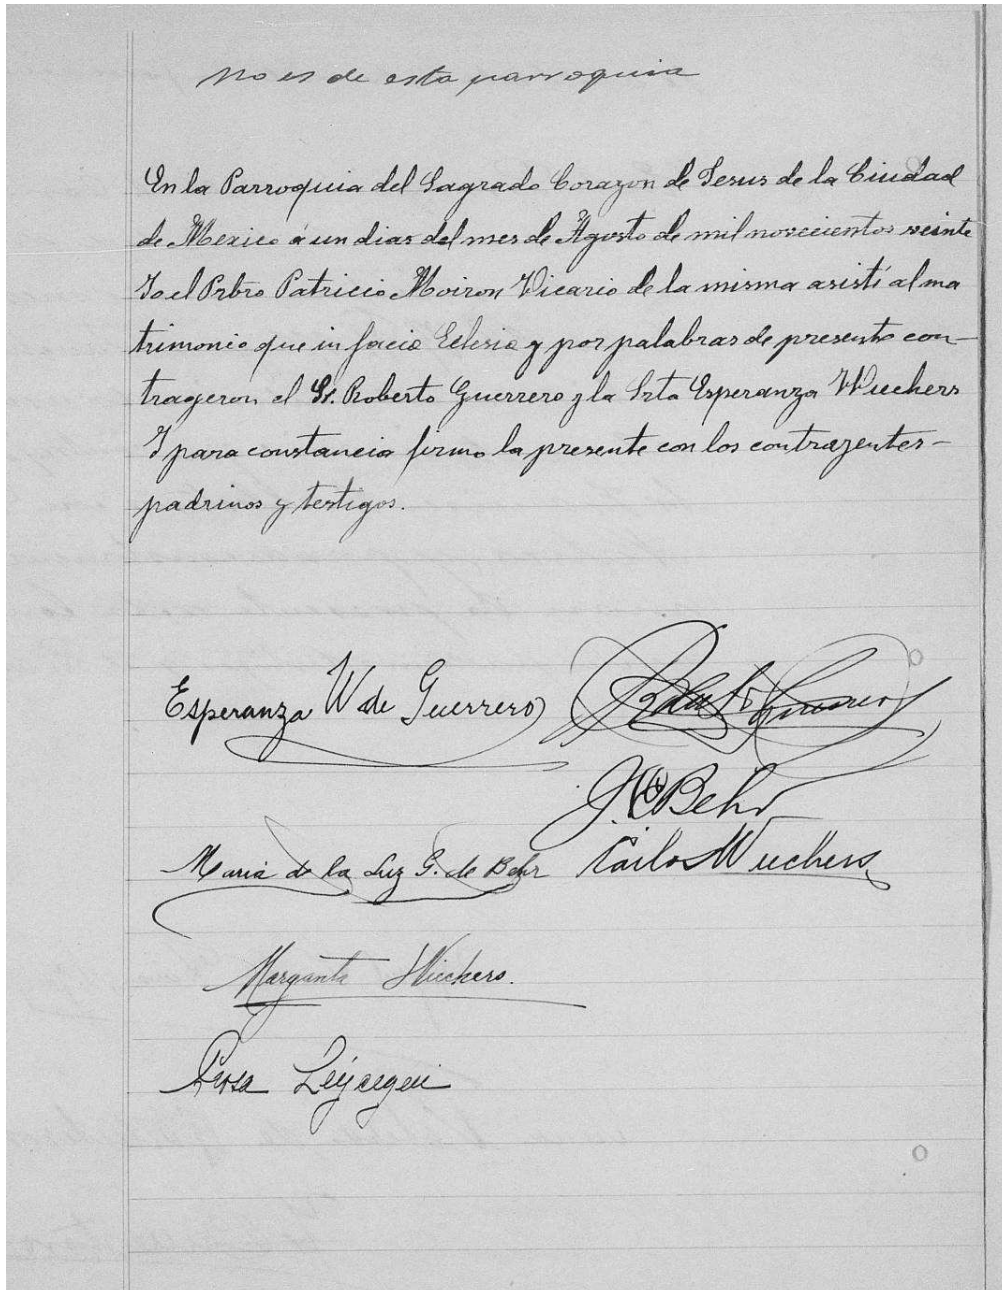 no es de esta parroquia
En la Parroquia del Sagrado Corazon de Jesus de la Ciudad
de Mexico á un dias del mes de Agosto de mil novecientos veinte
Yo el Prbro Patricio Moiron Vicario de la misma asistí al ma
trimonio que in facie Eclesia y por palabras de presente con-
trageron el Sr. Roberto Guerrero y la Srta Esperanza Wiechers
Y para constancia firmo la presente con los contrayentes-
padrinos y testigos.
Esperanza W de Guerrero Roberto Guerrero
Behr
Maria de la Luz G. de Behr Carlos Wiechers
Margarita Wiechers.
Rosa